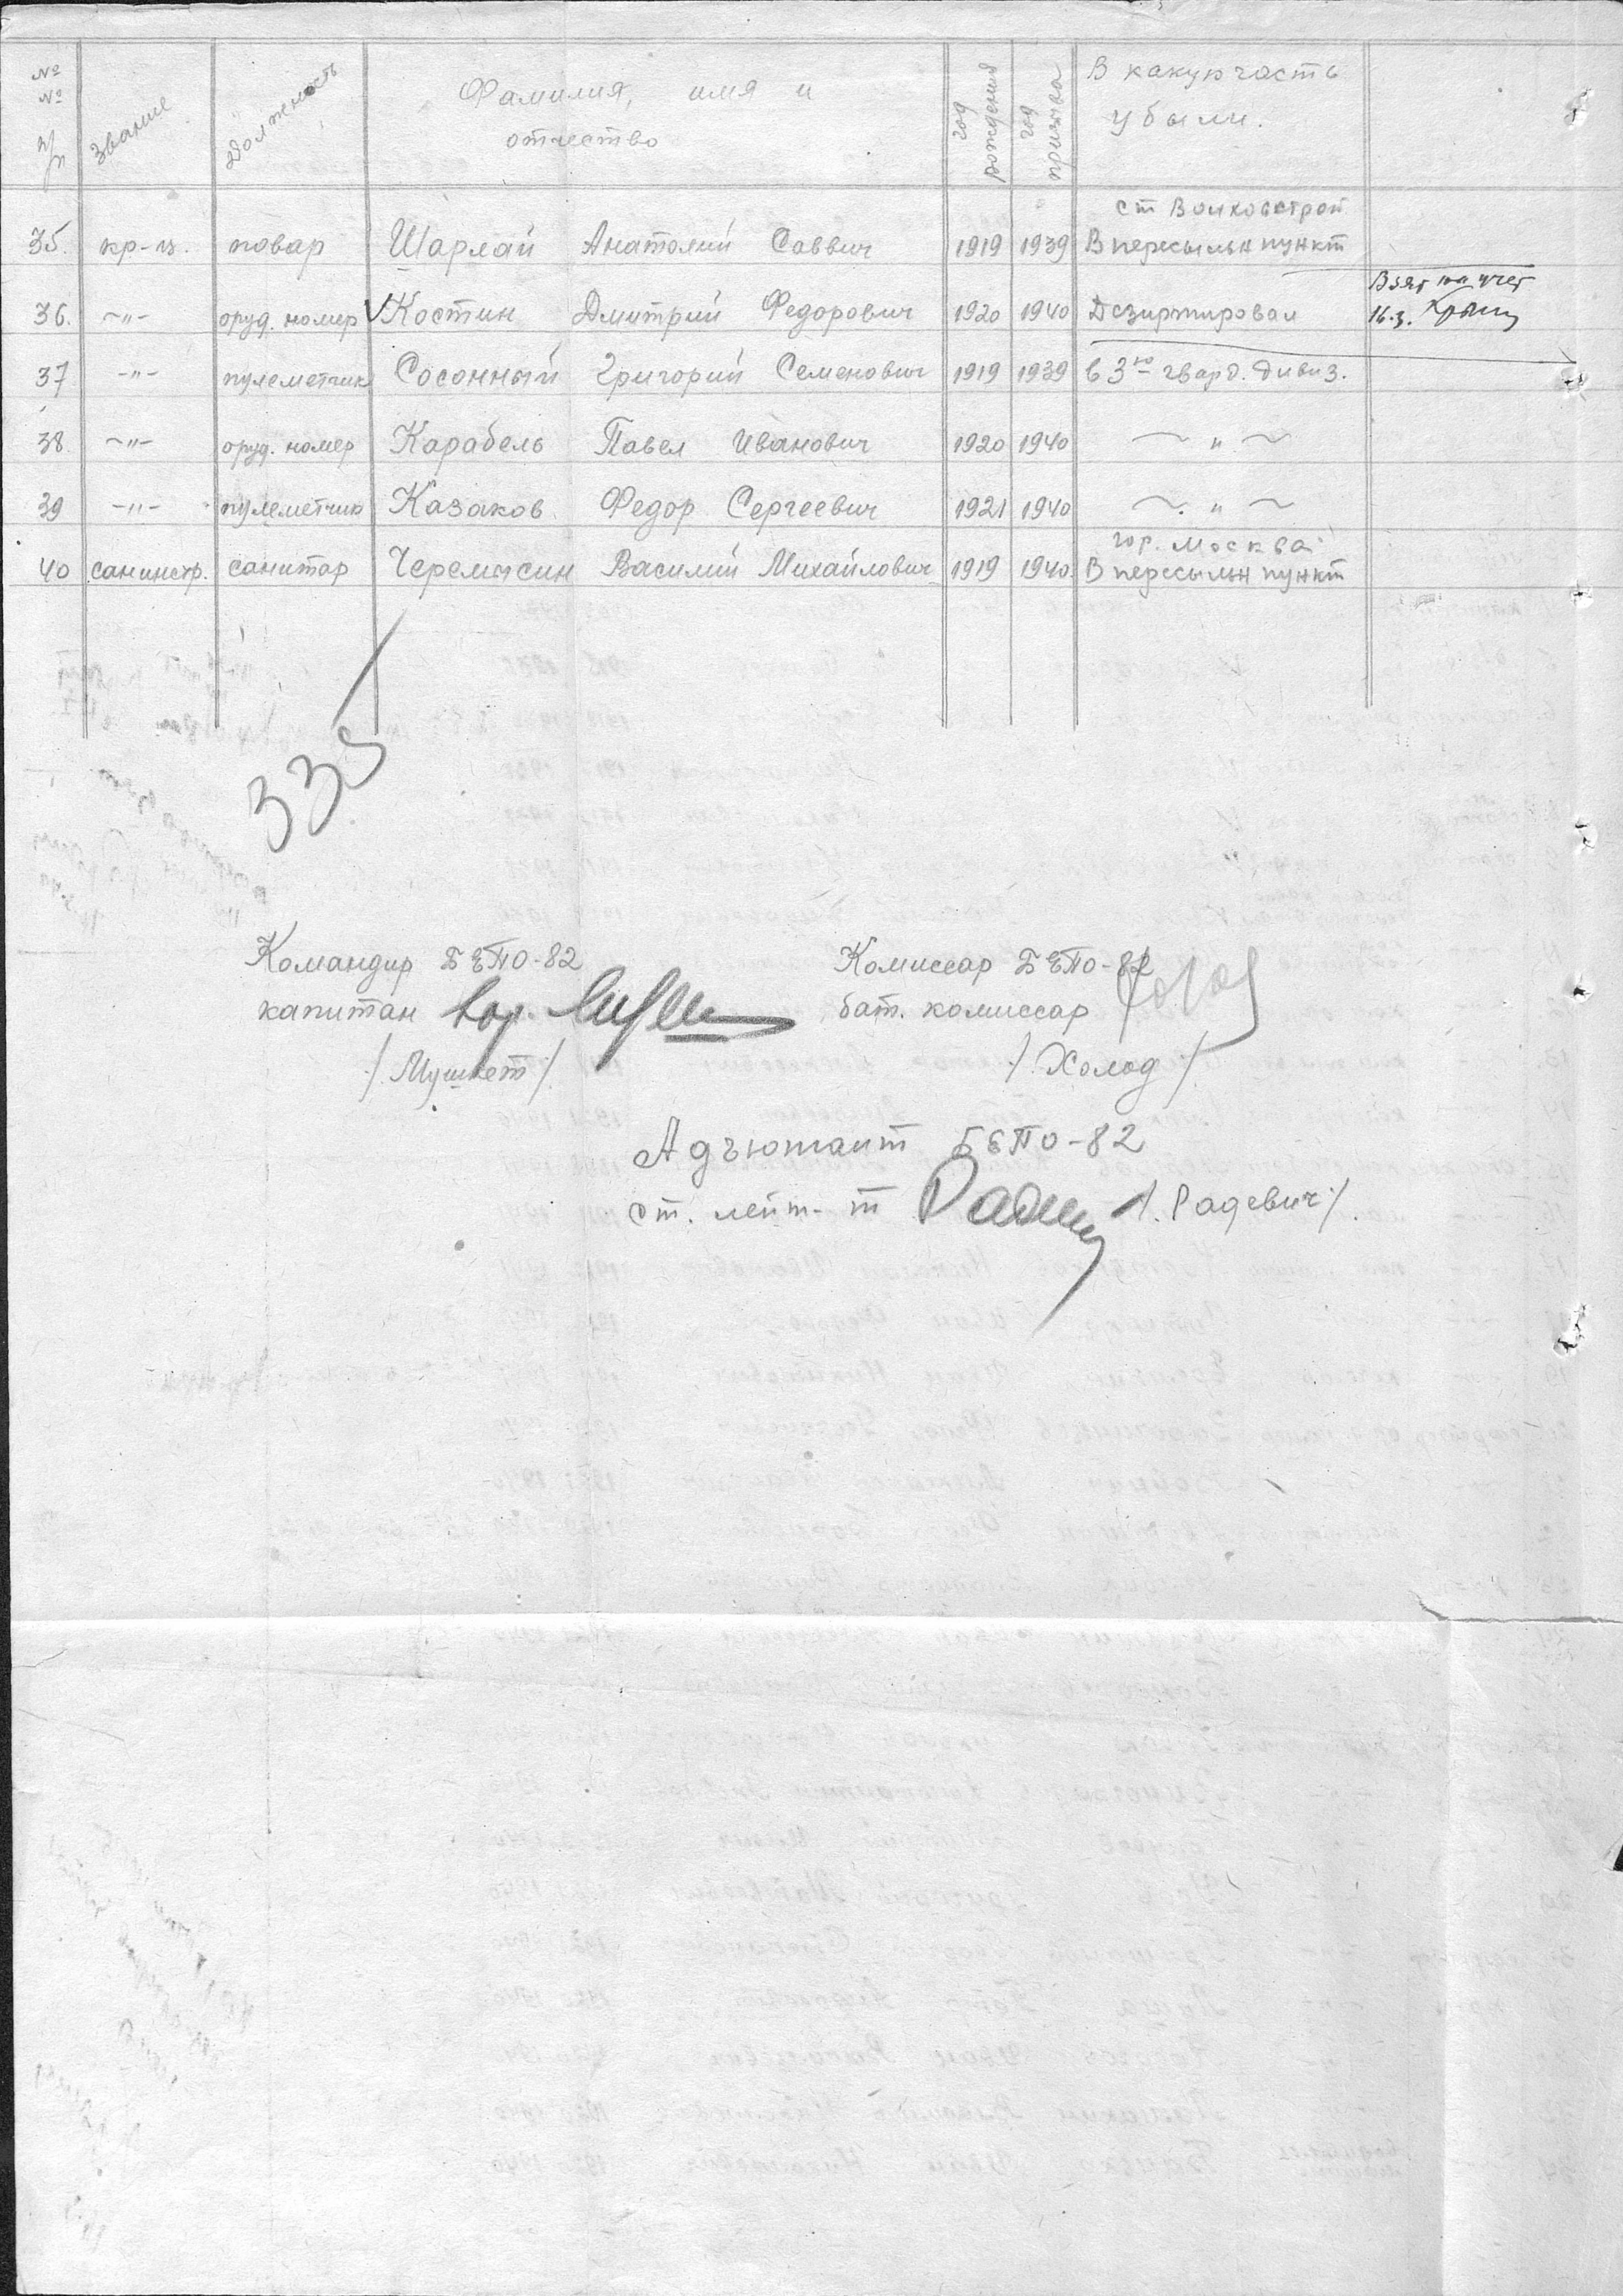 № № п/п Звание Должность Фамилия, имя и отчество год рождения год призыва В какую часть убыли.
ст Волховстрой
35. кр-ц. повар Шарлай Анатолий Саввич 1919 1939 В пересыльн пункт
Взят на учет
36. -"- оруд. номер Костин Дмитрий Федорович 1920 1940 Дезиртировал 16.3.
37 -"- пулеметчик Сосонный Григорий Семенович 1919 1939 в 3ю гвард. дивиз.
38. -"- оруд. номер Карабель Павел Иванович 1920 1940 -"-
39 -"- пулеметчик Казаков Федор Сергеевич 1921 1940 -"-
гор. Москва
40 санинстр. санитар Черемисин Василий Михайлович 1919 1940 В пересыльн пункт
335
Командир БЕПО-82 Комиссар БЕПО-82
капитан бат. комиссар
/Мушкет/ /Холод/
Адъютант БЕПО-82
ст. лейт-т /.Радевич/.